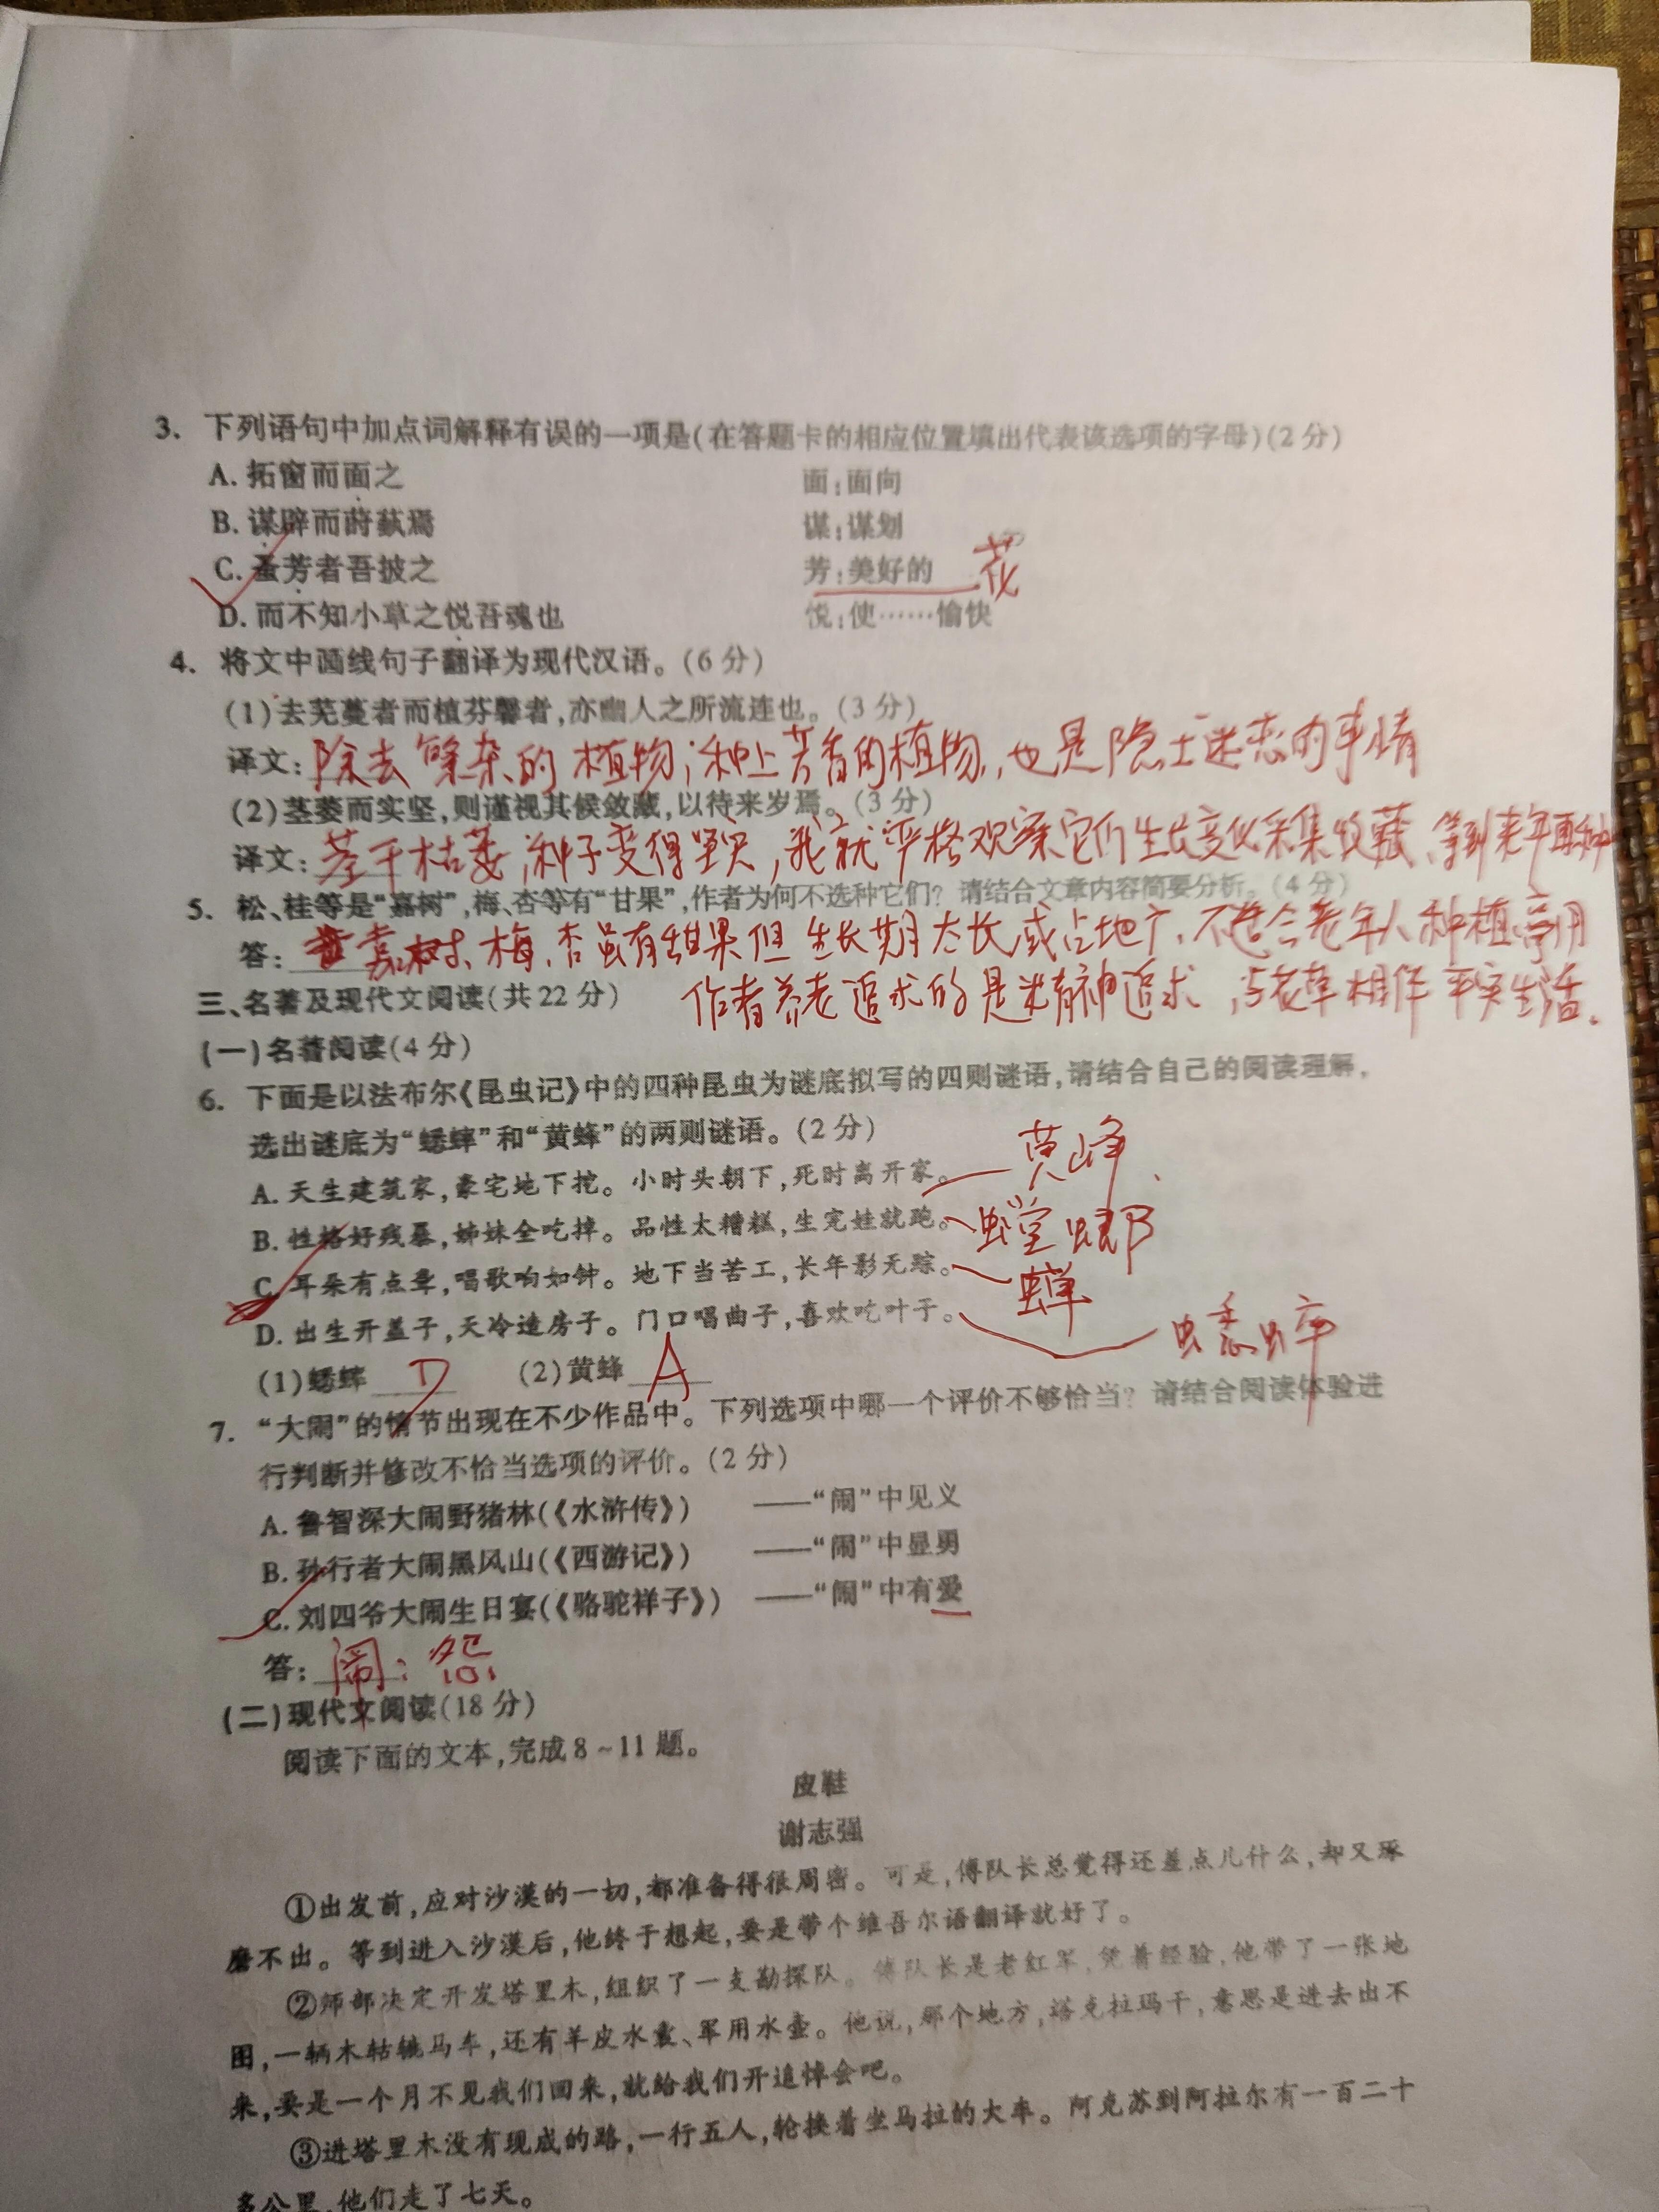 3. 下列语句中加点词解释有误的一项是(在答题卡的相应位置填出代表该选项的字母)(2分)
A. 拓窗而面之 面:面向
B. 谋辟而莳蓺焉 谋:谋划
C. 蚤芳者吾披之 芳:美好的 花
D. 而不知小草之悦吾魂也 悦:使……愉快
4. 将文中画线句子翻译为现代汉语。(6分)
(1)去芜蔓者而植芬馨者,亦幽人之所流连也。(3分)
译文:除去繁杂的植物;种上芳香的植物,也是隐士迷恋的事情
(2)茎萎而实坚,则谨视其候敛藏,以待来岁焉。(3分)
译文:茎干枯萎,种子变得坚实,我就严格观察它们生长变化采集收藏、等到来年再种
5. 松、桂等是“嘉树”,梅、杏等有“甘果”,作者为何不选种它们？请结合文章内容简要分析。(4分)
答:嘉树、梅、杏虽有甜果但生长期太长,或占地广、不适合老年人种植、享用
作者养老追求的是精神追求,与花草相伴平实生活.
三、名著及现代文阅读(共22分)
(一)名著阅读(4分)
6. 下面是以法布尔《昆虫记》中的四种昆虫为谜底拟写的四则谜语,请结合自己的阅读理解,
选出谜底为“蟋蟀”和“黄蜂”的两则谜语。(2分)
A. 天生建筑家,豪宅地下挖。小时头朝下,死时离开家。 黄峰
B. 性格好残暴,姊妹全吃掉。品性太糟糕,生完娃就跑。 螳螂
C. 耳朵有点聋,唱歌响如钟。地下当苦工,长年影无踪。 蝉
D. 出生开盖子,天冷造房子。门口唱曲子,喜欢吃叶子。 蟋蟀
(1)蟋蟀 D (2)黄蜂 A
7. “大闹”的情节出现在不少作品中。下列选项中哪一个评价不够恰当？请结合阅读体验进
行判断并修改不恰当选项的评价。(2分)
A. 鲁智深大闹野猪林(《水浒传》) ——“闹”中见义
B. 孙行者大闹黑风山(《西游记》) ——“闹”中显勇
C. 刘四爷大闹生日宴(《骆驼祥子》) ——“闹”中有爱
答:闹:怨
(二)现代文阅读(18分)
阅读下面的文本,完成8~11题。
皮鞋
谢志强
①出发前,应对沙漠的一切,都准备得很周密。可是,傅队长总觉得还差点儿什么,却又琢
磨不出。等到进入沙漠后,他终于想起,要是带个维吾尔语翻译就好了。
②师部决定开发塔里木,组织了一支勘探队。傅队长是老红军,凭着经验,他带了一张地
图,一辆木轱辘马车,还有羊皮水囊、军用水壶。他说,那个地方,塔克拉玛干,意思是进去出不
来,要是一个月不见我们回来,就给我们开追悼会吧。
③进塔里木没有现成的路,一行五人,轮换着坐马拉的大车。阿克苏到阿拉尔有一百二十
多公里,他们走了七天。